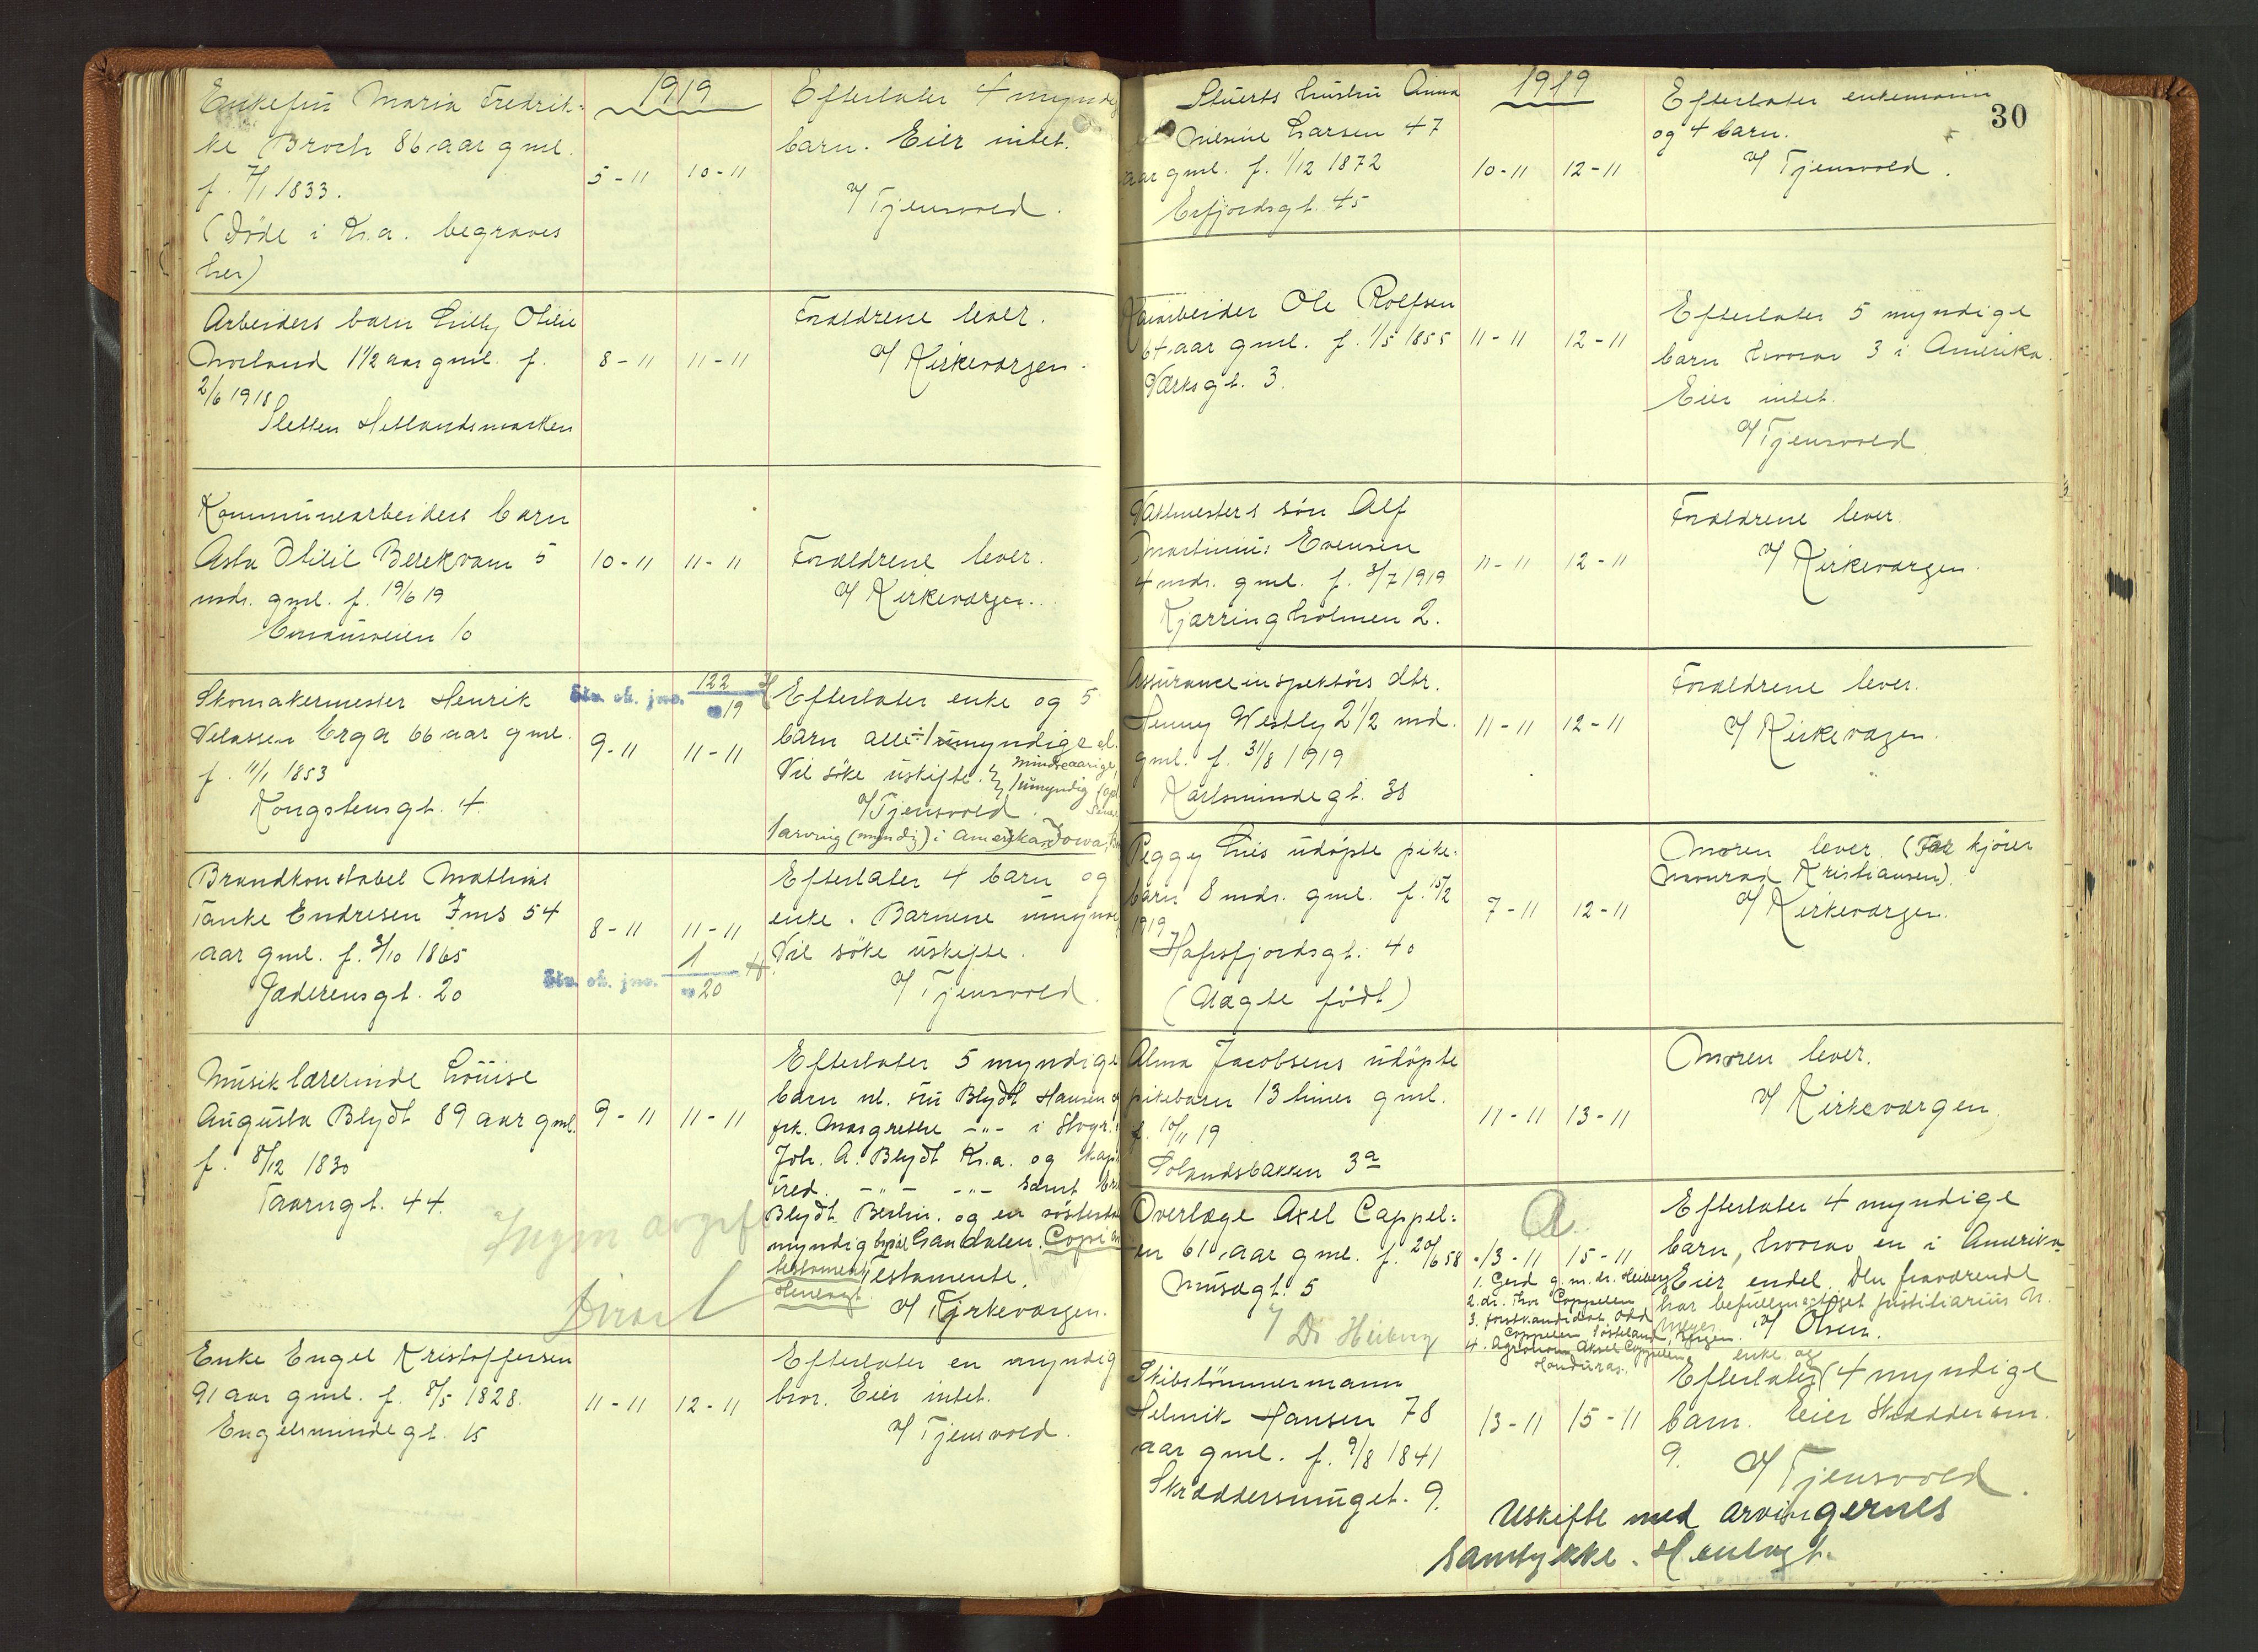 Enkefru Maria Fredrik-
ke Broch 86 aar gml.
f. 7/1 1833.
(Døde i Kr.a. begraves
her)
1919
5-11 10-11
Efterlater 4 myndig
barn. Eier intet.
v/ Tjensvold.
Arbeiders barn Lilly Otilie
Norland 1 1/2 aar gml. f.
2/6 1918
Sletten Hetlandsmarken
8-11 11-11
Forældrene lever.
v/ Kirkeværgen.
Kommunearbeiders barn
Asta Otilie Berekvam 5
mdr. gml. f. 19/6 19
Emausveien 10
10-11 11-11
Forældrene lever.
v/ Kirkeværgen.
Skomakermester Henrik
Velassen Erga 66 aar gml.
f. 11/1 1853
Kongstensgt. 4.
Stv. sk. jno. 122
19
9-11 11-11
Efterlater enke og 5
barn alle ÷ 1 umyndige el.
mindreaarige,
Vil søke uskifte. 1 umyndig
v/ Tjensvold.
1 arving (myndig) i Amerika, Iowa,
Brandkonstabel Mathias
Tanke Endresen Ims 54
aar gml. f. 3/10 1865
Jæderensgt. 20
8-11 11-11
Stv. sk. jno. 1
20
Efterlater 4 barn og
enke. Barnene umynd
Vil søke uskifte.
v/ Tjensvold.
Musiklærerinde Louise
Augusta Blydt 89 aar gml.
f. 8/12 1830
Taarngt. 44.
9-11 11-11
Ingen avgift
Efterlater 5 myndige
barn nl. fru Blydt Hansen og
frk. Margrethe -"- i Stvgr.
Joh. A. Blydt Kr.a. og kapt
Fred. -"- -"- samt
Blydt Berlin. og en søster
myndig Sandalen. Copi av
testament Testamente.
Henlagt. v/ Kirkeværgen.
Enke Engel Kristoffersen
91 aar gml. f. 8/5 1828.
Engelsmindegt. 15
11-11 12-11
Efterlater en myndig
bror. Eier intet.
v/ Tjensvold.
30
Stuerts hustru Anna
Nilsine Larsen 47
aar gml. f. 1/12 1872
Erfjordsgt. 45
1919
10-11 12-11
Efterlater enkemann
og 4 barn.
v/ Tjensvold.
Kaiarbeider Ole Rolfsen
64 aar gml. f. 1/5 1855
Værksgt. 3.
11-11 12-11
Efterlater 5 myndige
barn hvorav 3 i Amerika.
Eier intet.
v/ Tjensvold
Vaktmesters søn Alf
Martinius Evensen
4 mdr. gml. f. 3/7 1919
Kjærringholmen 2.
11-11 12-11
Forældrene lever.
v/ Kirkeværgen.
Assuranceinspektørs dtr.
Henny Westly 2 1/2 md.
gml. f. 31/8 1919
Karlsmindegt. 38
11-11 12-11
Forældrene lever.
v/ Kirkevægen.
Peggy Lies udøpte pike-
barn 8 mdr. gml. f. 15/2
1919
Hafrsfjordsgt. 40
(Uægte født)
7-11 12-11
Moren lever. (Far kjører
Monrad Kristiansen).
v/ Kirkeværgen.
Alma Jacobsens udøpte
pikebarn 13 timer gml.
f. 10/11 19
Solandsbakken 3a
11-11 13-11
Moren lever.
v/ Kirkeværgen.
Overlæge Axel Cappel-
en 61 aar gml. f. 20/6 58
Musægt. 5
v/ Dr Heiberg
A.
13-11 15-11
1. Gerd g.m. dr. Heiberg
2. dr. Thor Cappelen
3. forstkandidat Odd
Cappelen
4. Agronom Aksel Cappelen
Honduras.
Efterlater 4 myndige
barn, hvorav en i Amerika
Eier endel. Den fraværende
har befuldmægtiget justitiarius N.
v/ Olsen.
Skibstømmermann
Helmik Hansen 78
aar gml. f. 9/8 1841
Skræddersmuget. 9.
13-11 15-11
enke og
Efterlater 4 myndige
barn. Eier Skræddersm.
9.
v/ Tjensvold.
Uskifte med arvingernes
samtykke. Henlagt.